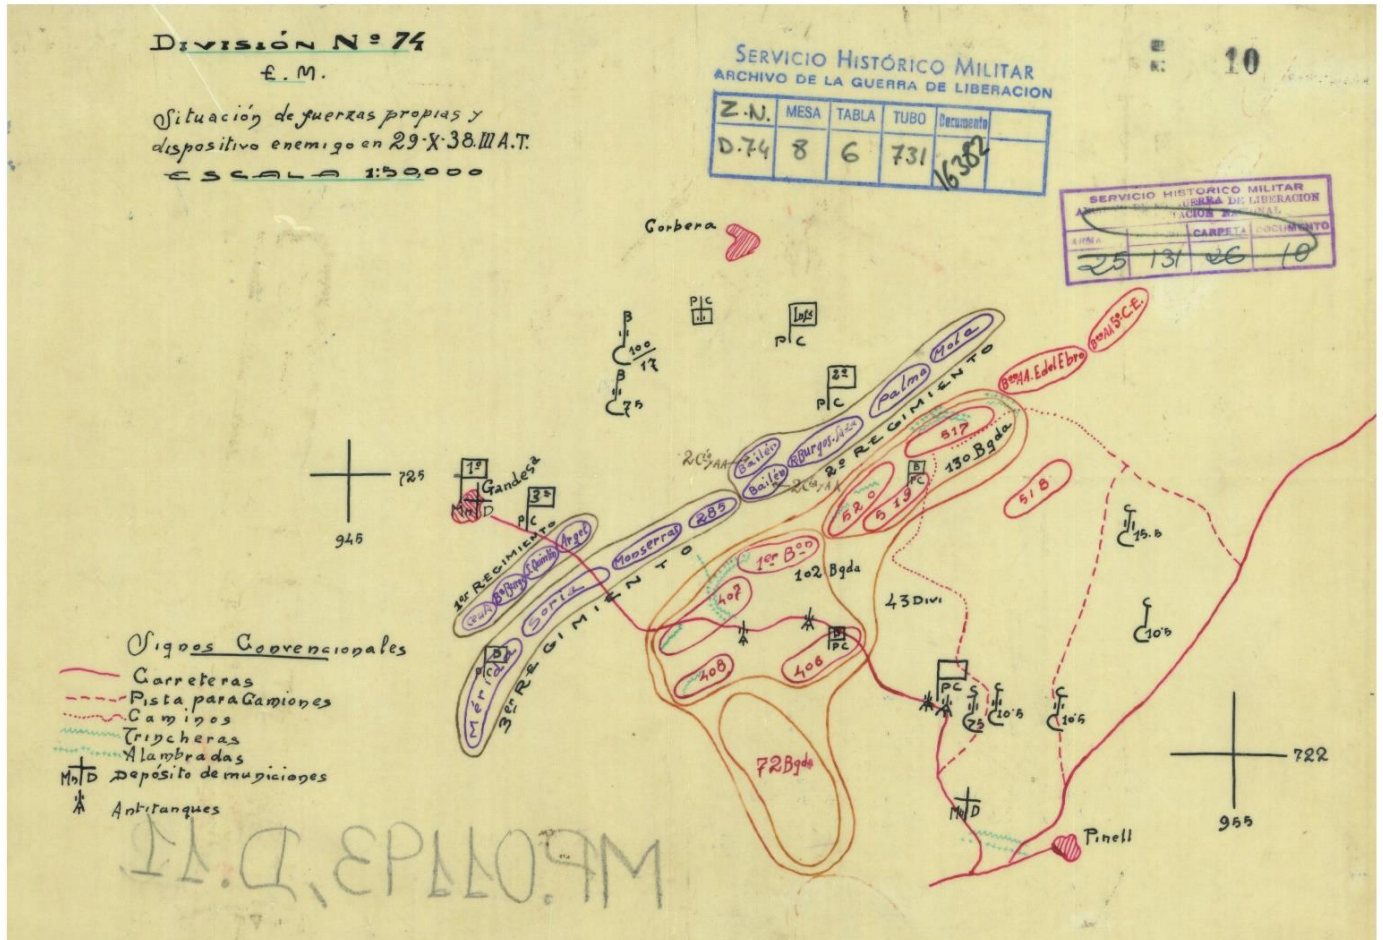 DIVISIÓN Nº 74
E.M.
Situación de fuerzas propias y
dispositivo enemigo en 29-X-38.III A.T.
ESCALA 1:50,000
SERVICIO HISTÓRICO MILITAR
ARCHIVO DE LA GUERRA DE LIBERACION
Z.N. MESA TABLA TUBO Documento
D.74 8 6 731 16382
10
SERVICIO HISTORICO MILITAR
GUERRA DE LIBERACION
NACIONAL
ARMA CARPETA DOCUMENTO
25 131 26 10
Corbera
PC
PC
B
100/17
B
75
2º
PC
Mola
Palma
2º REGIMIENTO
Bon AA. E del Ebro
Bon AA 5º C.E.
Bailén
Bailén
517
130 Bgda
B
PC
520
519
518
725
945
1º
Gandesa
Mn D
3º
PC
285
Monserrat
Soria
Mérida
B
PC
3er REGIMIENTO
1er REGIMIENTO
Argel
1er Bon
102 Bgda
407
408
406
B
PC
43 Divi
72 Bgda
C
15.5
C
10'5
PC
75
C
10'5
C
10'5
Mn D
Pinell
722
955
Signos Convencionales
Carreteras
Pista para Camiones
Caminos
Trincheras
Alambradas
Mn D Depósito de municiones
Antitanques
MP.01193, D.11